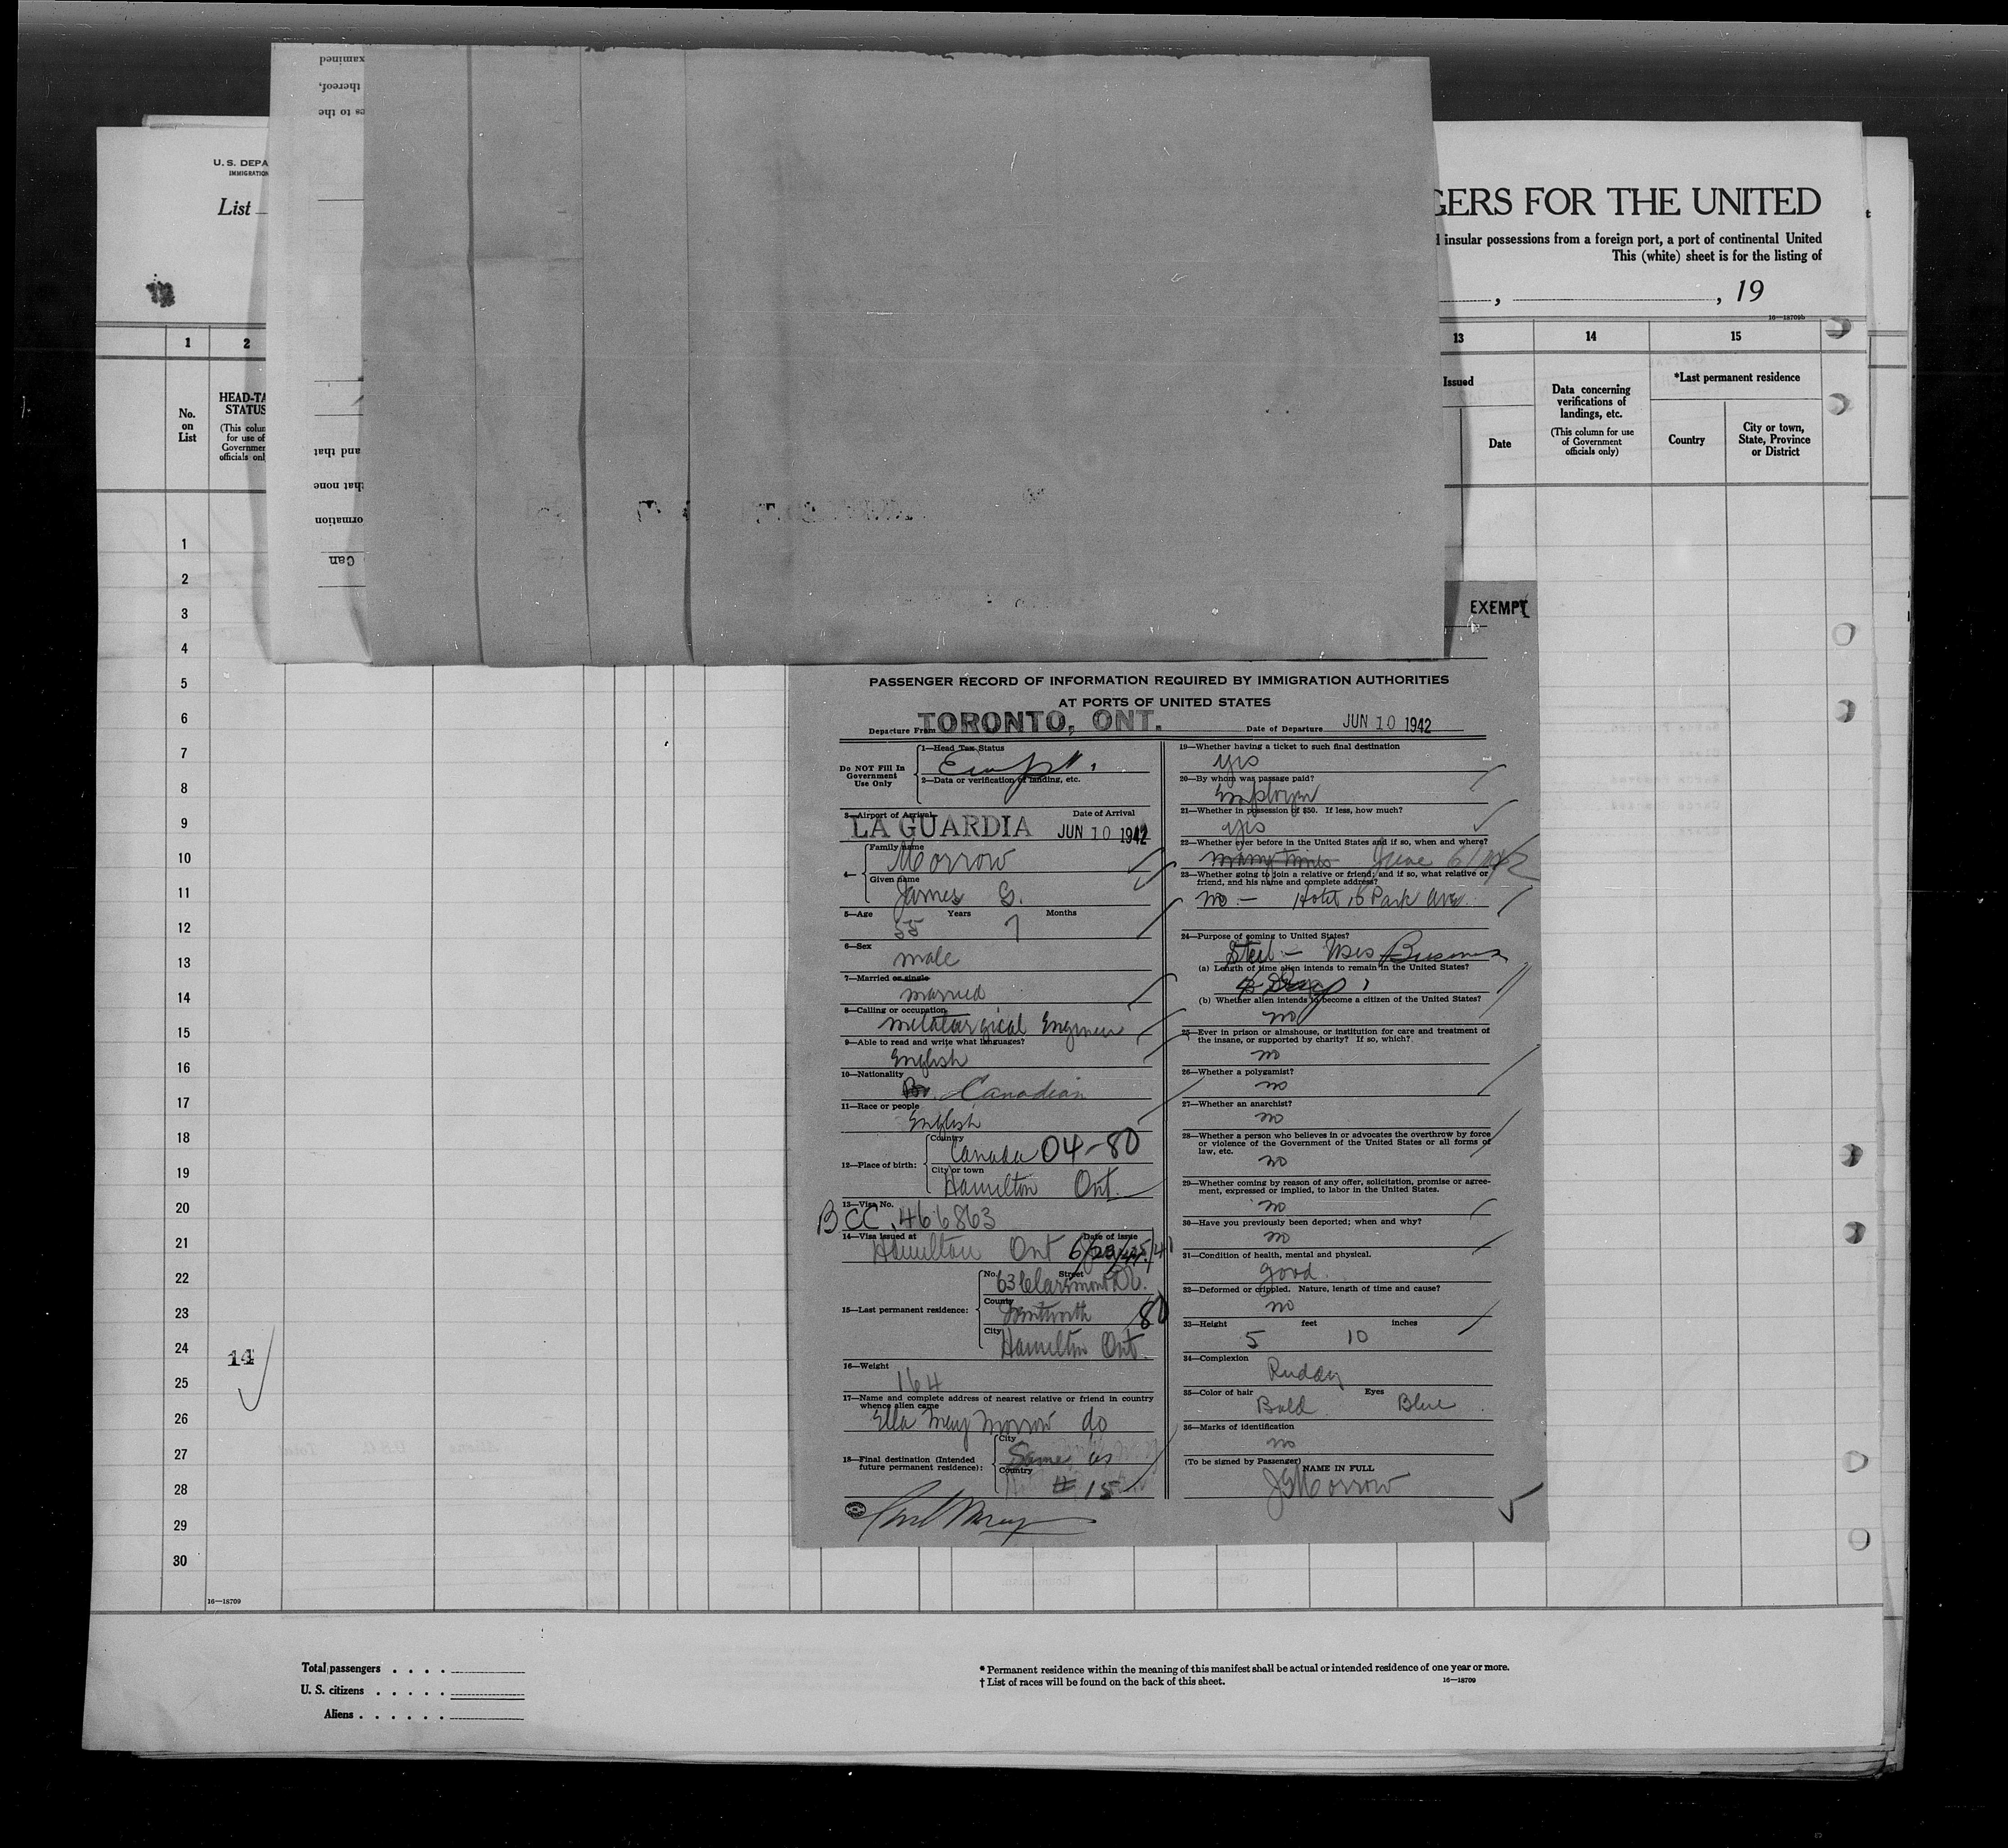 examined
thereof,
es to the
and that
that none
ormation
Can
U. S. DEPA
IMMIGRATION
List
GERS FOR THE UNITED
insular possessions from a foreign port, a port of continental United
This (white) sheet is for the listing of
, , 19
16—18709b
1 2 13 14 15
No. on List
HEAD-TA
STATUS
(This colum
for use of
Governmen
officials onl
Issued
Date
Data concerning
verifications of
landings, etc.
(This column for use
of Government
officials only)
*Last permanent residence
Country
City or town,
State, Province
or District
1
2
3
4
5
6
7
8
9
10
11
12
13
14
15
16
17
18
19
20
21
22
23
24 14
25
26
27
28
29
30
16—18709
EXEMPT
PASSENGER RECORD OF INFORMATION REQUIRED BY IMMIGRATION AUTHORITIES
AT PORTS OF UNITED STATES
Departure From TORONTO, ONT. Date of Departure JUN 10 1942
Do NOT Fill In
Government
Use Only
1—Head Tax Status
Exempt
2—Data or verification of landing, etc.
3—Airport of Arrival Date of Arrival
LA GUARDIA JUN 10 1942
4— Family name
Morrow
Given name
James G.
5—Age Years Months
55 7
6—Sex
male
7—Married or single
married
8—Calling or occupation
metalurgical Engineer
9—Able to read and write what languages?
English
10—Nationality
Br. Canadian
11—Race or people
English
12—Place of birth:
Country
Canada 04-80
City or town
Hamilton Ont.
13—Visa No.
BCC. 466863
14—Visa issued at Date of issue
Hamilton Ont
15—Last permanent residence:
No. Street
63 Claremont Dr.
County
Wentworth 80
City
Hamilton Ont.
16—Weight
164
17—Name and complete address of nearest relative or friend in country
whence alien came
Ella May Morrow do
18—Final destination (Intended
future permanent residence):
City
Same as
Country
# 15
19—Whether having a ticket to such final destination
yes
20—By whom was passage paid?
Employer
21—Whether in possession of $50. If less, how much?
yes
22—Whether ever before in the United States and if so, when and where?
many times June 6/1942
23—Whether going to join a relative or friend; and if so, what relative or
friend, and his name and complete address?
no — Hotel, Park Ave.
24—Purpose of coming to United States?
Steel — Business
(a) Length of time alien intends to remain in the United States?
Day
(b) Whether alien intends to become a citizen of the United States?
no
25—Ever in prison or almshouse, or institution for care and treatment of
the insane, or supported by charity? If so, which?
no
26—Whether a polygamist?
no
27—Whether an anarchist?
no
28—Whether a person who believes in or advocates the overthrow by force
or violence of the Government of the United States or all forms of
law, etc.
no
29—Whether coming by reason of any offer, solicitation, promise or agree-
ment, expressed or implied, to labor in the United States.
no
30—Have you previously been deported; when and why?
no
31—Condition of health, mental and physical.
good.
32—Deformed or crippled. Nature, length of time and cause?
no
33—Height feet inches
5 10
34—Complexion
Ruddy
35—Color of hair Eyes
Bald. Blue
36—Marks of identification
no
(To be signed by Passenger)
NAME IN FULL
JGMorrow
Total passengers . . . .
U. S. citizens . . . . .
Aliens . . . . . .
* Permanent residence within the meaning of this manifest shall be actual or intended residence of one year or more.
† List of races will be found on the back of this sheet.
16—18709